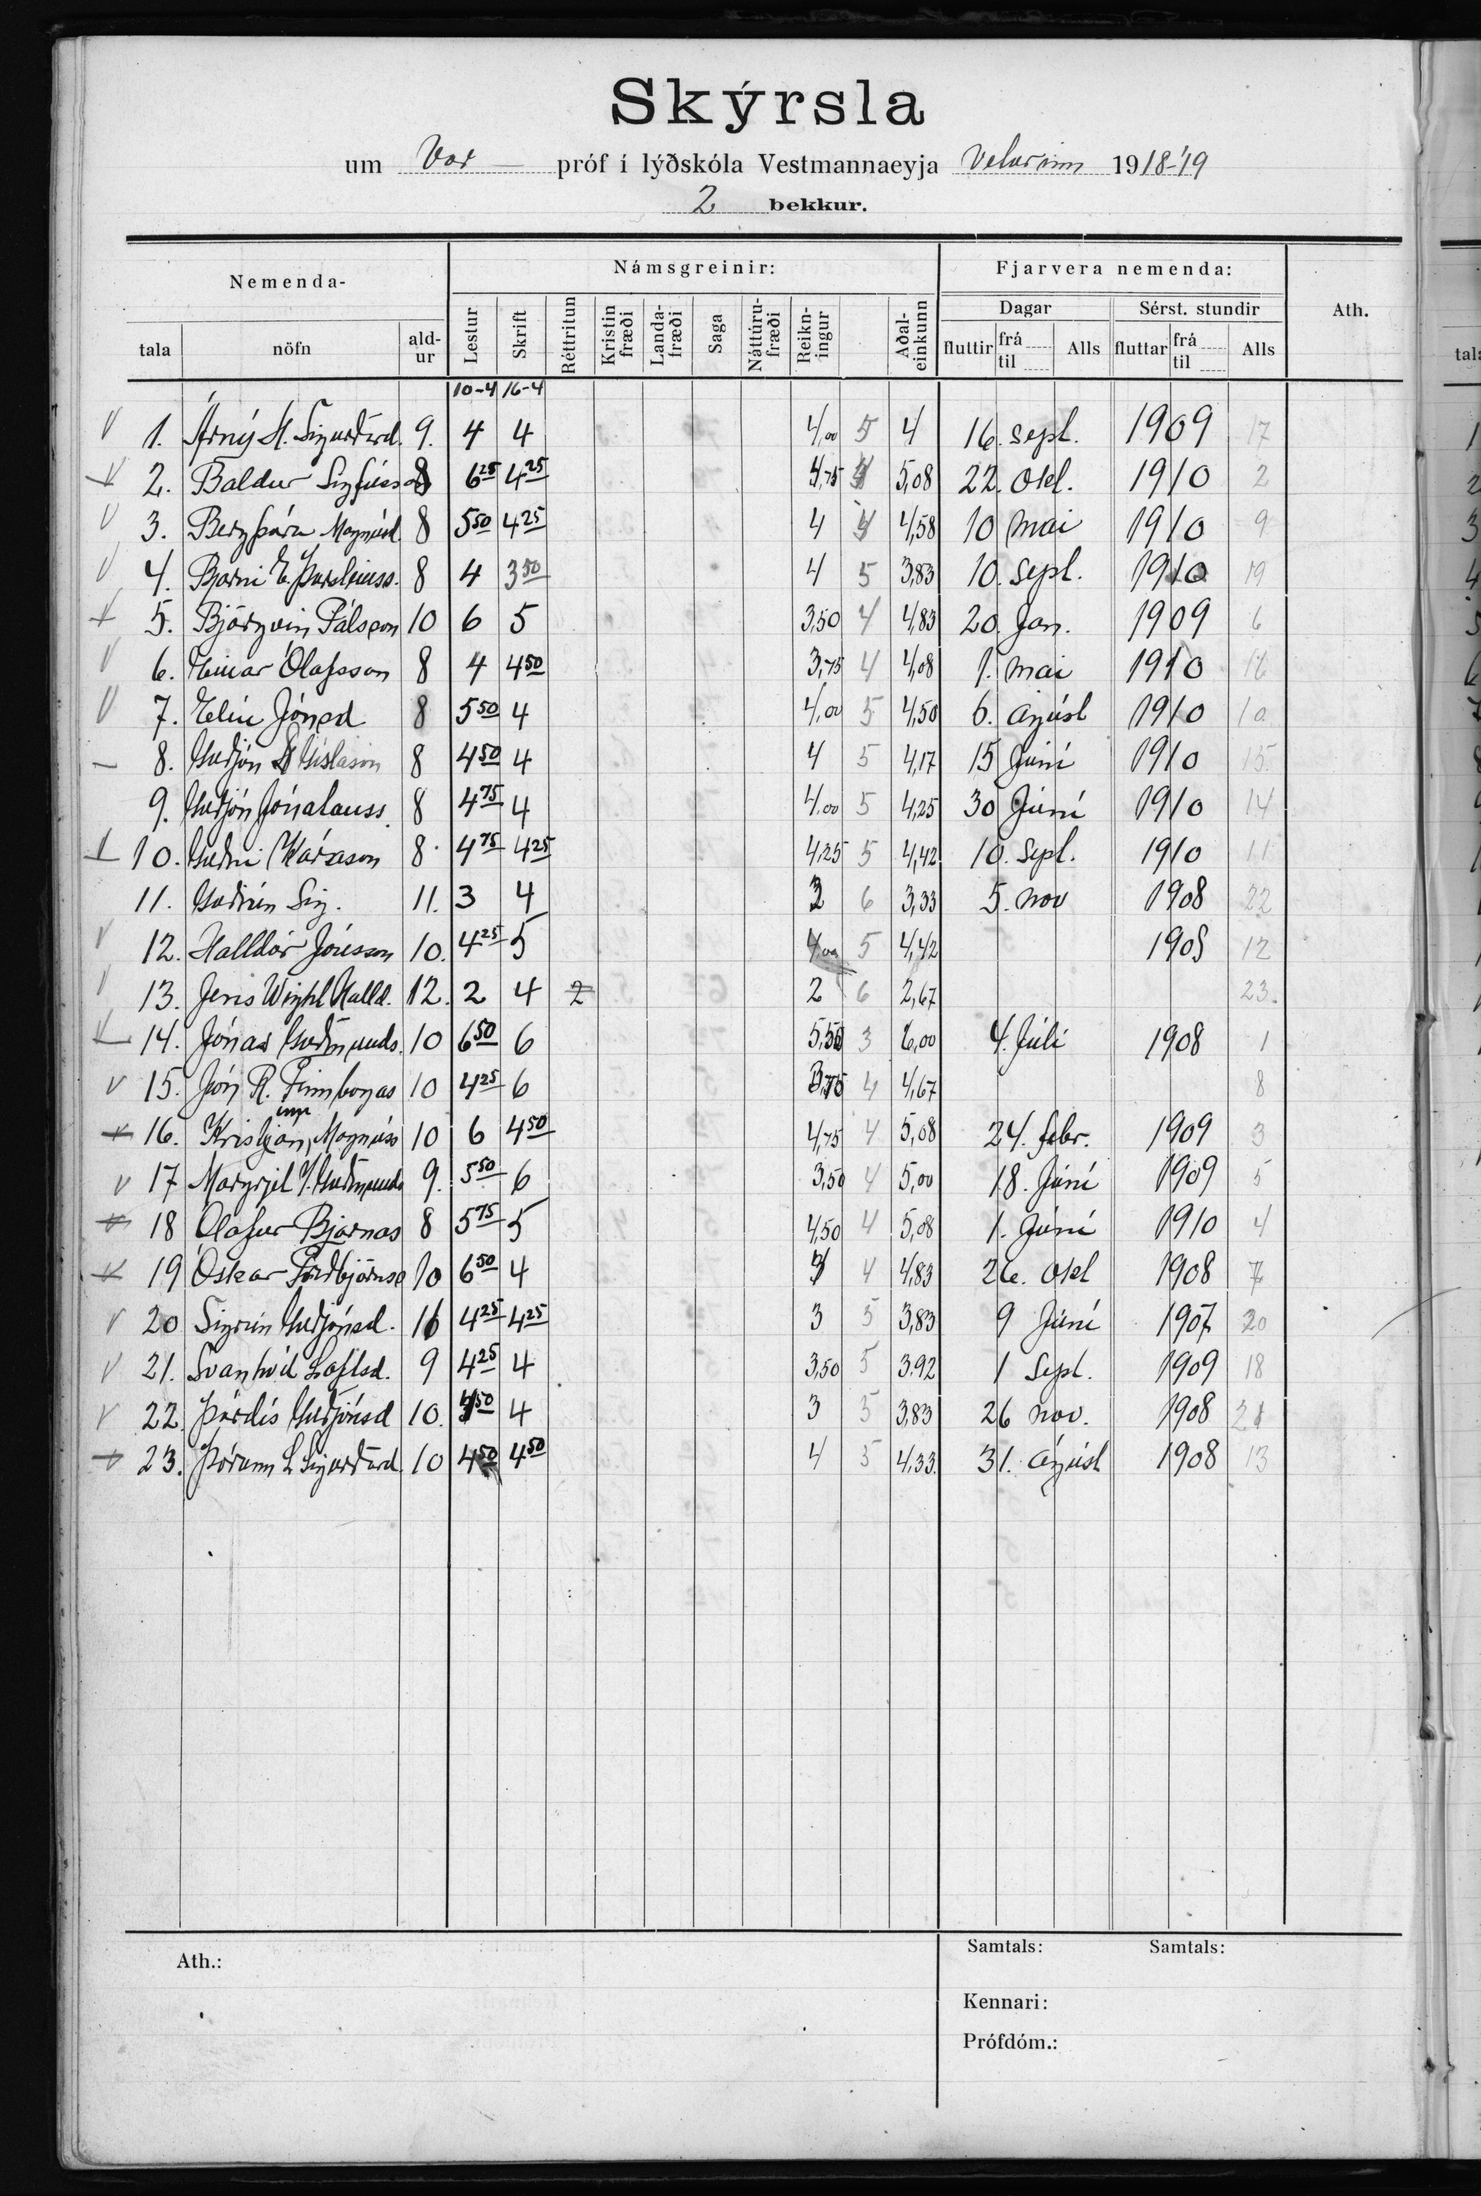 Skýrsla
um Vor — próf í lýðskóla Vestmannaeyja Veturinn 1918-'19
2 bekkur.
Nemenda- Námsgreinir: Fjarvera nemenda: Ath.
Dagar Sérst. stundir
tala nöfn ald-ur Lestur Skrift Réttritun Kristin fræði Landa-fræði Saga Náttúru-fræði Reikn-ingur Aðal-einkunn fluttir frá til Alls fluttar frá til Alls
10-4 16-4
V 1. Árný M. Sigurðard. 9. 4 4 4,00 5 4 16. sept. 1909 17
V 2. Baldur Sigfússon 8 6 25 4 25 4,75 4 5,08 22. okt. 1910 2
V 3. Bergþóra Magnúsd. 8 5 50 4 25 4 4 4,58 10 mai 1910 9
V 4. Bjarni E. Þorsteinss. 8 4 3 50 4 5 3,83 10. sept. 1910 19
5. Björgvin Pálsson 10 6 5 3,50 4 4,83 20. Jan. 1909 6
V 6. Einar Ólafsson 8 4 4 50 3,75 4 4,08 1. mai 1910 16
V 7. Elín Jónsd 8 5 50 4 4,00 5 4,50 6. ágúst 1910 10
– 8. Guðjón Gíslason 8 4 50 4 4 5 4,17 15 Júní 1910 15.
9. Guðjón Jónatanss. 8 4 75 4 4,00 5 4,25 30 Júní 1910 14
10. Guðni Kárason 8 4 75 4 25 4,25 5 4,42 10. sept. 1910 11
11. Guðrún Sig. 11. 3 4 3 6 3,33 5. nov 1908 22
V 12. Halldór Jónsson 10. 4 25 5 4,00 5 4,42 1909 12
V 13. Jens Wight Halld. 12. 2 4 2 2 6 2,67 23.
14. Jónas Guðmunds. 10 6 50 6 5,50 3 6,00 4. Júlí 1908 1
V 15. Jón R. Finnbogas 10 4 25 6 3,75 4 4,67 8
16. Kristján Magnúss 10 6 4 50 4,75 4 5,08 24. febr. 1909 3
V 17 Margrjet J. Guðmunds 9. 5 50 6 3,50 4 5,00 18. Júní 1909 5
18 Ólafur Bjarnas 8 5 75 5 4,50 4 5,08 1. Júní 1910 4
19 Óskar Friðbjörnss 10 6 50 4 4 4 4,83 26. okt 1908 7
V 20 Sigrún Guðjónsd. 11 4 25 4 25 3 5 3,83 9 Júní 1907 20
V 21. Svanhvít Loftsd. 9 4 25 4 3,50 5 3.92 1 sept. 1909 18
V 22 Þórdís Guðjónsd 10. 4 50 4 3 5 3,83 26 nov. 1908 21
23. Þórunn L Sigurðard. 10 4 50 4 50 4 5 4,33. 31. ágúst 1908 13
Ath.: Samtals: Samtals:
Kennari:
Prófdóm.: